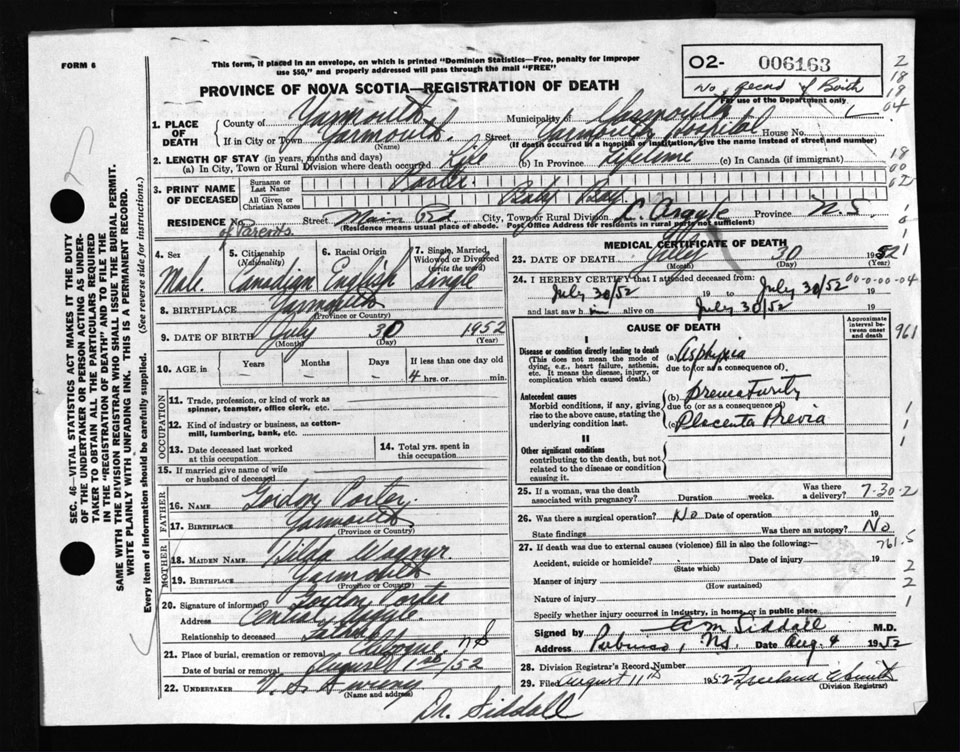 FORM 6
This form, if placed in an envelope, on which is printed "Dominion Statistics—Free, penalty for improper
use $50," and properly addressed will pass through the mail "FREE"
PROVINCE OF NOVA SCOTIA—REGISTRATION OF DEATH
02- 006163
No Record of Birth
For use of the Department only
2
18
18
04
1. PLACE OF DEATH
County of Yarmouth Municipality of Yarmouth
If in City or Town Yarmouth. Street Yarmouth Hospital House No.
(Name) (If death occurred in a hospital or institution, give the name instead of street and number)
2. LENGTH OF STAY (in years, months and days)
(a) In City, Town or Rural Division where death occurred Life (b) In Province Lifetime (c) In Canada (if immigrant)
18
00
02
3. PRINT NAME OF DECEASED
Surname or Last Name Porter.
All Given or Christian Names Baby Boy.
RESIDENCE No. Street Main Rd. City, Town or Rural Division C. Argyle Province N.S.
of Parents. (Residence means usual place of abode. Post Office Address for residents in rural parts not sufficient)
4. Sex Male.
5. Citizenship (Nationality) Canadian
6. Racial Origin English
7. Single, Married, Widowed or Divorced (write the word) Single
8. BIRTHPLACE Yarmouth
(Province or Country)
9. DATE OF BIRTH July 30 1952
(Month) (Day) (Year)
10. AGE in Years Months Days If less than one day old
— — — 4 hrs. or min.
OCCUPATION
11. Trade, profession, or kind of work as
spinner, teamster, office clerk, etc.
12. Kind of industry or business, as cotton-
mill, lumbering, bank, etc.
13. Date deceased last worked
at this occupation
14. Total yrs. spent in
this occupation
15. If married give name of wife
or husband of deceased
FATHER
16. NAME Gordon Porter.
17. BIRTHPLACE Yarmouth
(Province or Country)
MOTHER
18. MAIDEN NAME Hilda Wagnyr.
19. BIRTHPLACE Yarmouth
(Province or Country)
20. Signature of informant Gordon Porter
Address Central Argyle.
Relationship to deceased Father
21. Place of burial, cremation or removal Argyle. N S
Date of burial or removal August 1st, 52
22. UNDERTAKER V. S. Sweeny
Dr. Siddall
MEDICAL CERTIFICATE OF DEATH
23. DATE OF DEATH July 30 1952
(Month) (Day) (Year)
24. I HEREBY CERTIFY that I attended deceased from: 00-0-00-04
July 30/52 19 to July 30/52 19
and last saw h im alive on July 30/52
CAUSE OF DEATH
Approximate interval between onset and death
961
I
Disease or condition directly leading to death
(This does not mean the mode of
dying, e.g., heart failure, asthenia,
etc. It means the disease, injury, or
complication which caused death.)
(a) Asphyxia
due to (or as a consequence of).
Antecedent causes
Morbid conditions, if any, giving
rise to the above cause, stating the
underlying condition last.
(b) Prematurity
due to (or as a consequence of)
(c) Placenta Previa
II
Other significant conditions
contributing to the death, but not
related to the disease or condition
causing it.
25. If a woman, was the death
associated with pregnancy? Duration weeks. Was there
a delivery? 7-30-2
26. Was there a surgical operation? No Date of operation 19
State findings Was there an autopsy? No
27. If death was due to external causes (violence) fill in also the following:— 761.5
Accident, suicide or homicide? Date of injury 19
(State which)
Manner of injury
(How sustained)
Nature of injury
Specify whether injury occurred in industry, in home, or in public place
Signed by A C M Siddall M.D.
Address Pubnico, NS. Date Aug. 4 1952
28. Division Registrar's Record Number
29. Filed August 11th 1952 Freeland E Smith
(Division Registrar)
SEC. 46—VITAL STATISTICS ACT MAKES IT THE DUTY
OF THE UNDERTAKER OR PERSON ACTING AS UNDER-
TAKER TO OBTAIN ALL THE PARTICULARS REQUIRED
IN THE "REGISTRATION OF DEATH" AND TO FILE THE
SAME WITH THE DIVISION REGISTRAR WHO SHALL ISSUE THE BURIAL PERMIT.
WRITE PLAINLY WITH UNFADING INK. THIS IS A PERMANENT RECORD.
Every item of information should be carefully supplied. (See reverse side for instructions.)